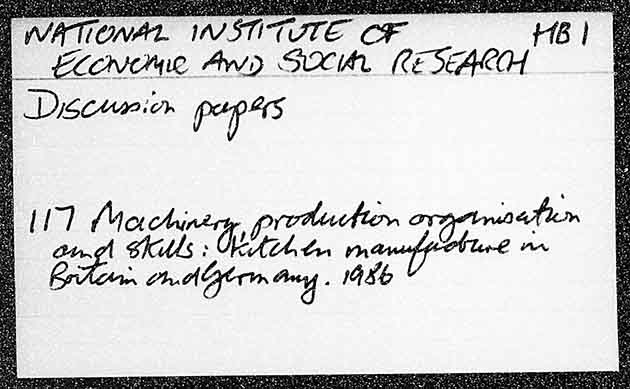 NATIONAL INSTITUTE OF HB1
ECONOMIC AND SOCIAL RESEARCH
Discussion papers
117 Machinery, production organisation
and skills: kitchen manufacture in
Britain and Germany. 1986